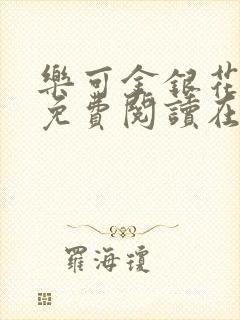 樂可金銀花
免費閱讀在
羅海瓊